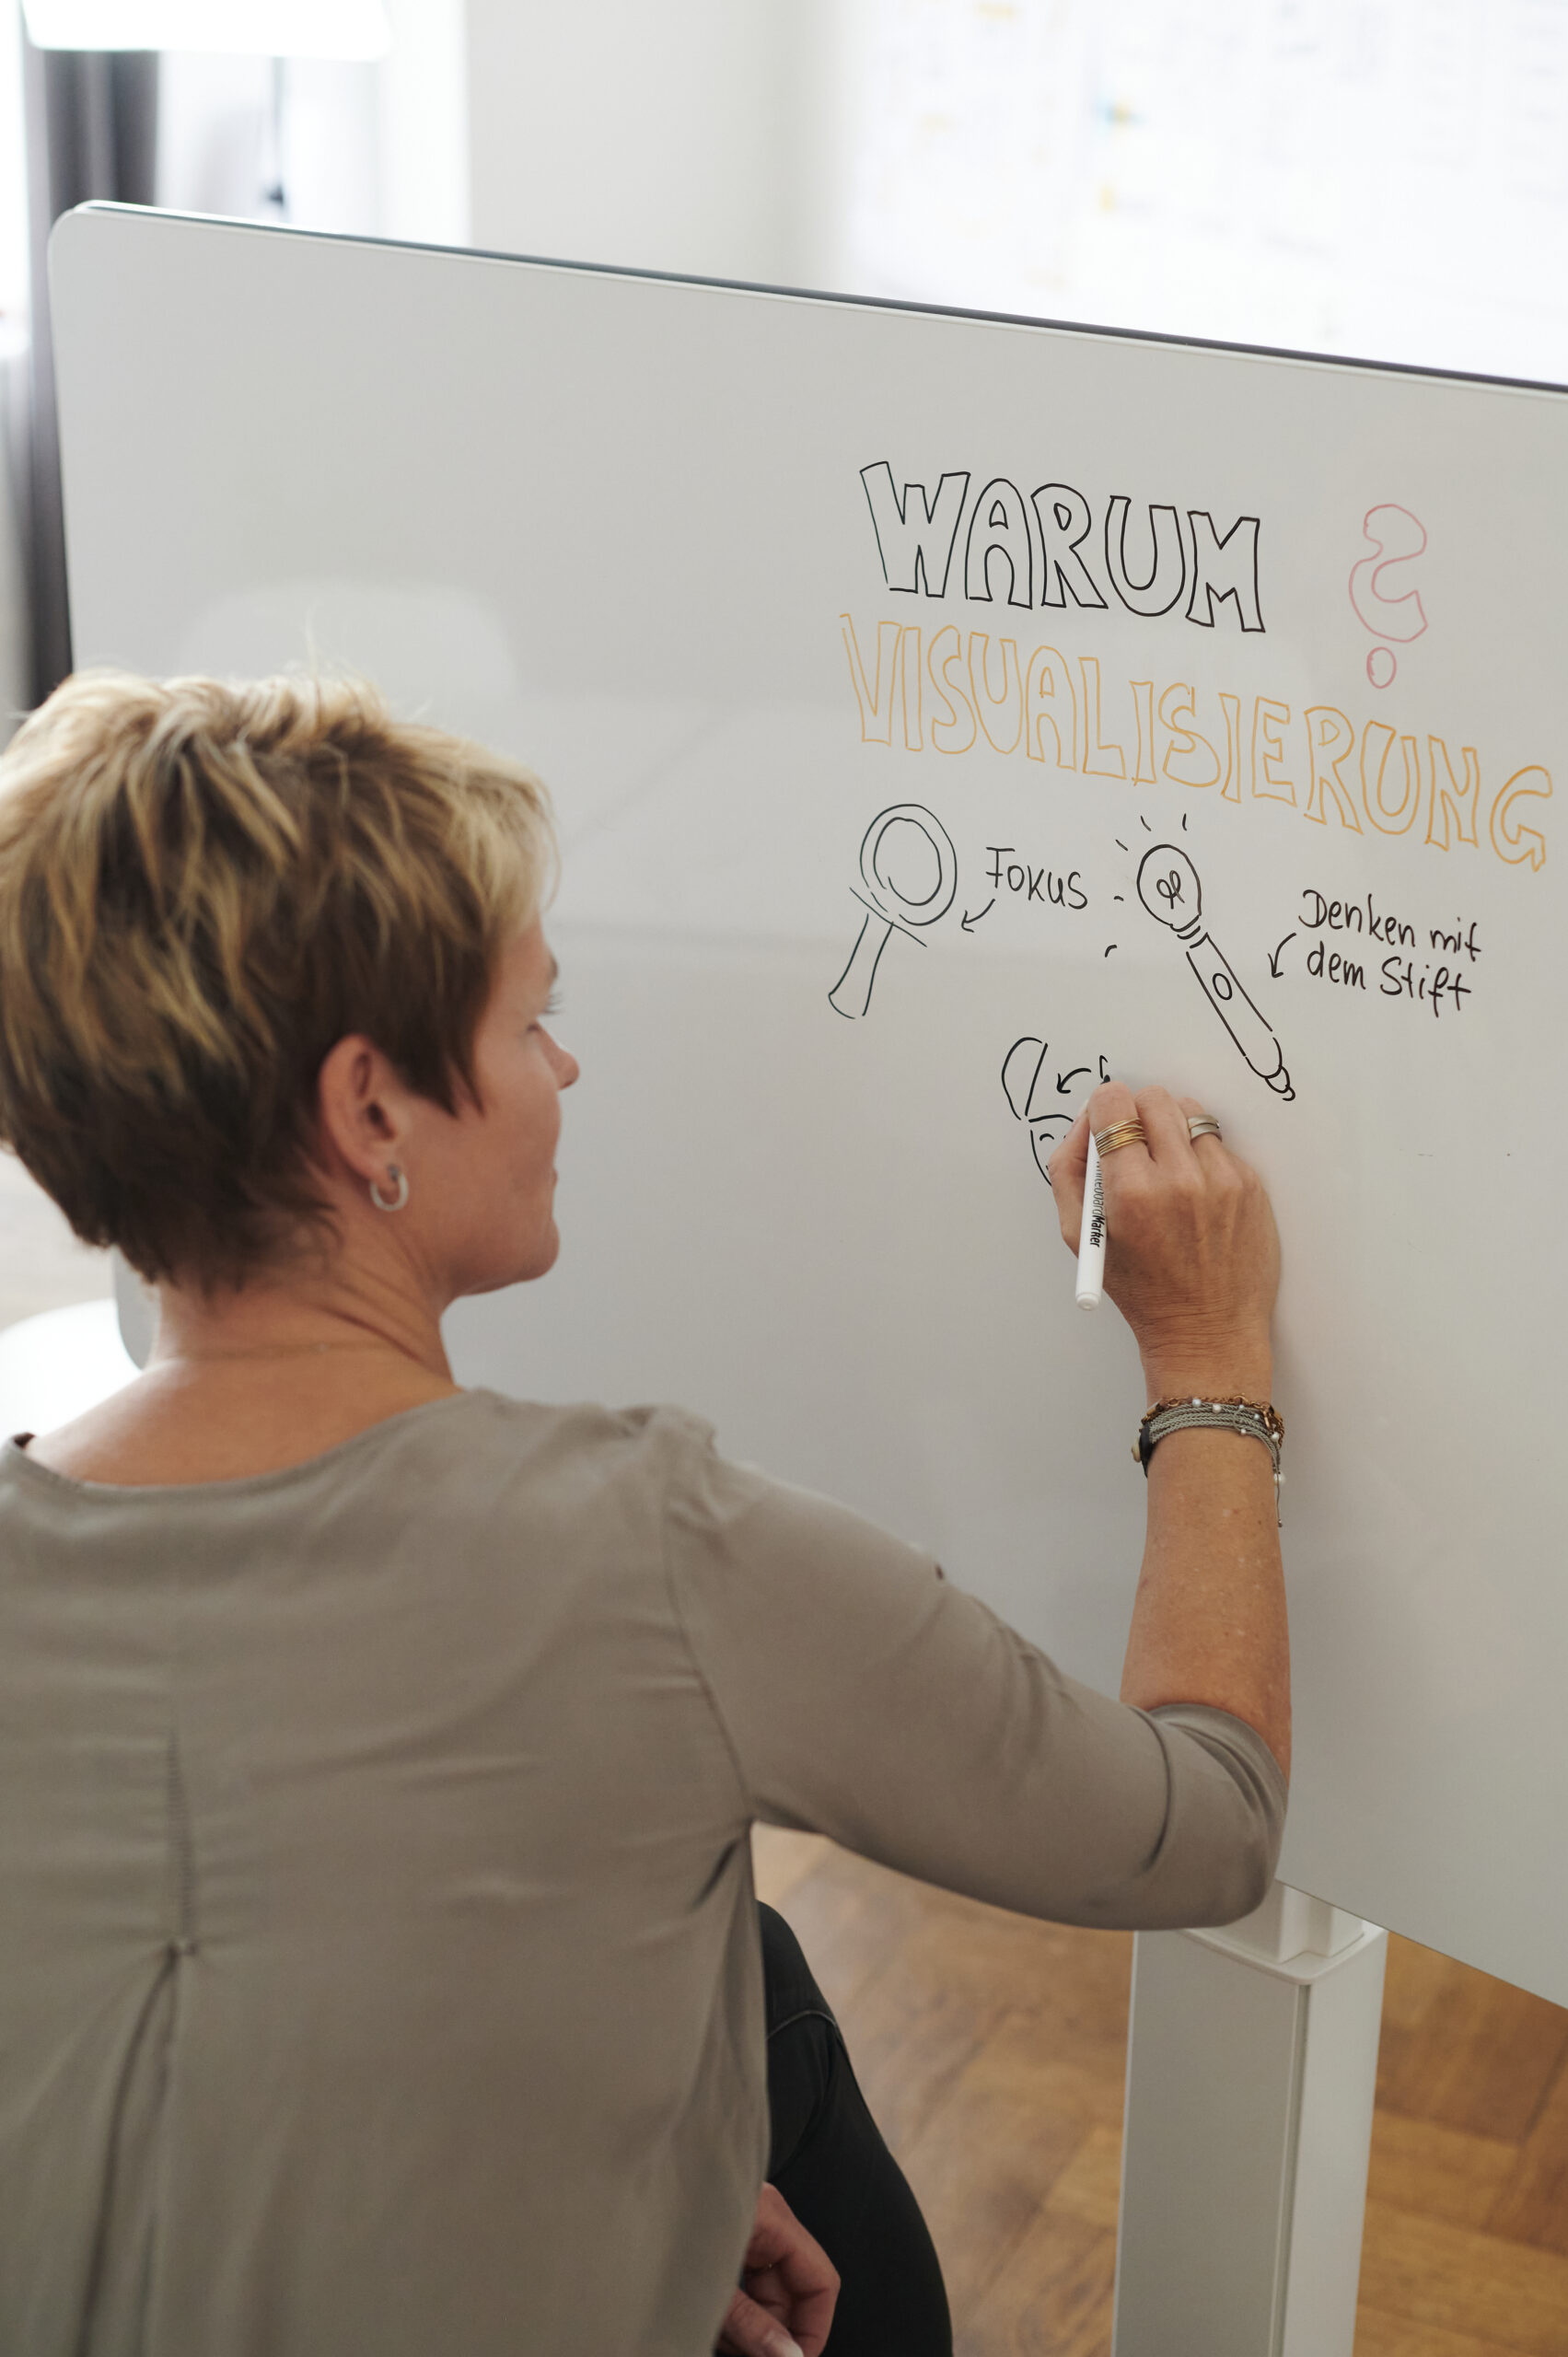 WARUM ?
VISUALISIERUNG
Fokus
Denken mit
dem Stift
WhiteboardMarker